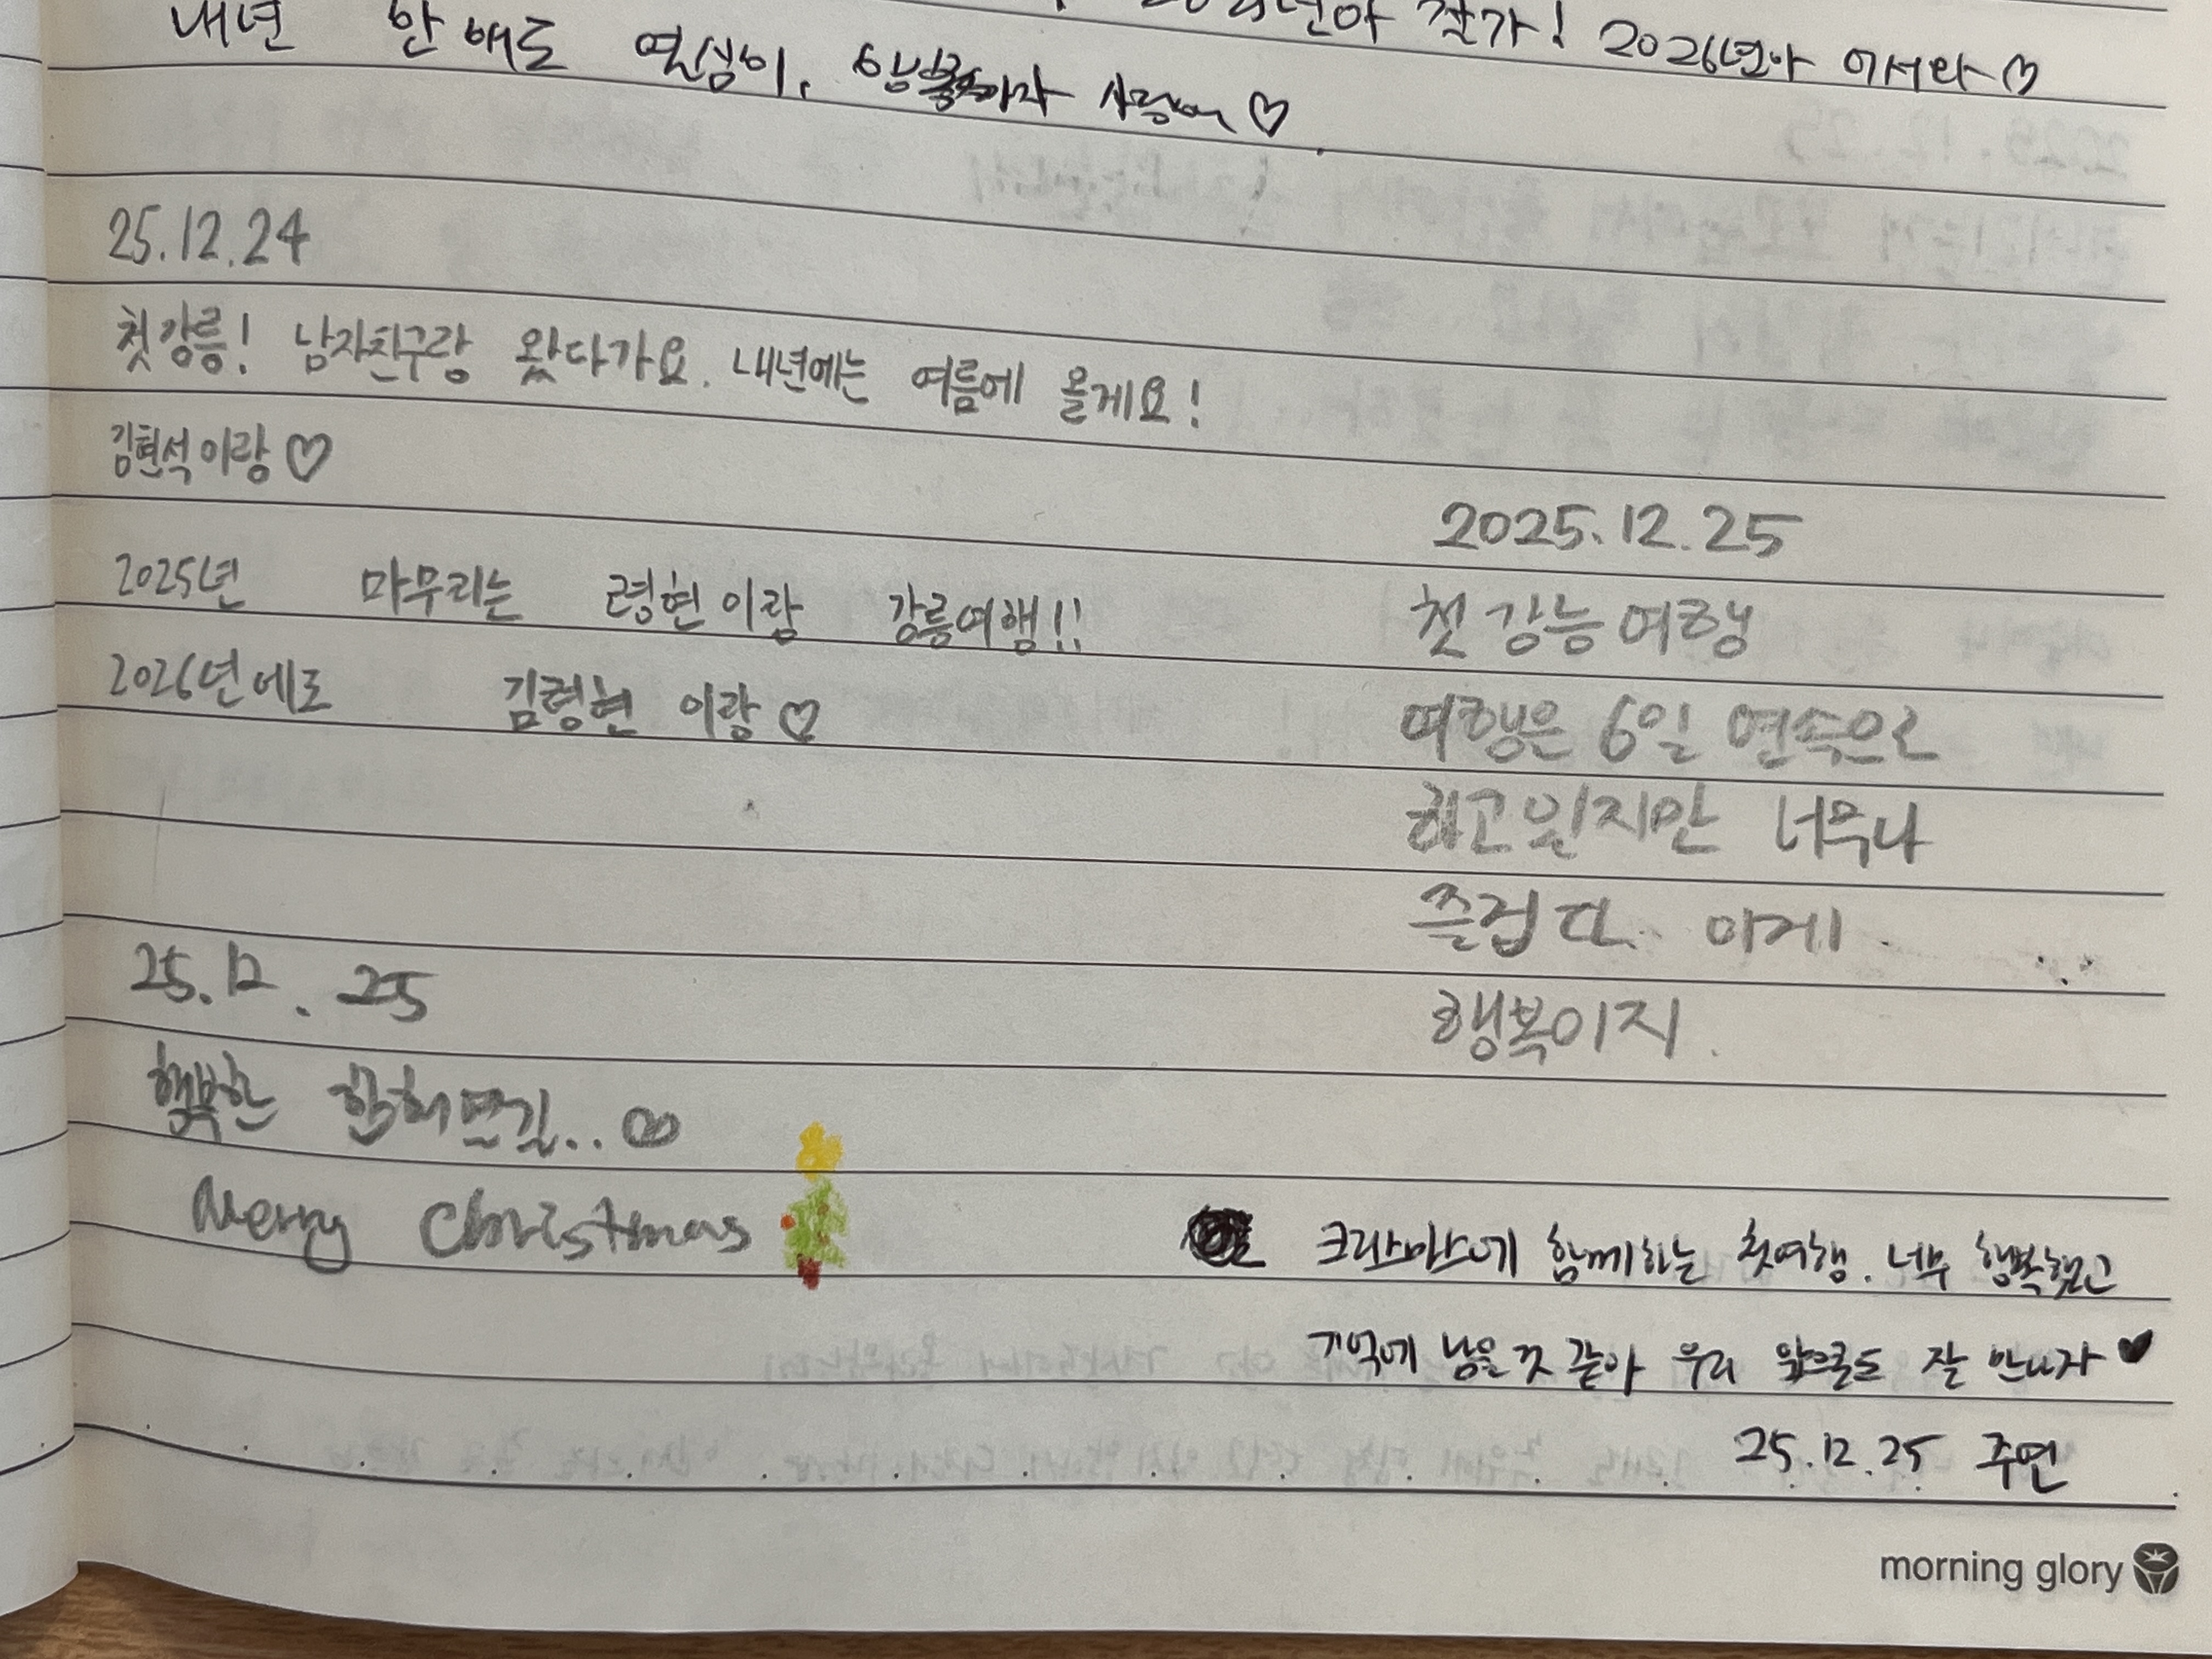 2025년아 잘가! 2026년아 어서와♡
내년 한 해도 열심히, 행복하자 사랑해♡
25.12.24
첫강릉! 남자친구랑 왔다가요. 내년에는 여름에 올게요!
김현석이랑♡
2025년 마무리는 령현이랑 강릉여행!!
2026년에도 김령현이랑♡
2025.12.25
첫 강능여행
여행은 6일 연속으로
최고일지만 너무나
즐겁다. 이게
행복이지.
25.12.25
행복한 ♡
Merry Christmas
크리스마스에 함께하는 첫여행. 너무 행복했고
기억에 남을 것 같아 우리 앞으로도 잘 만나자♥
25.12.25 주연
morning glory